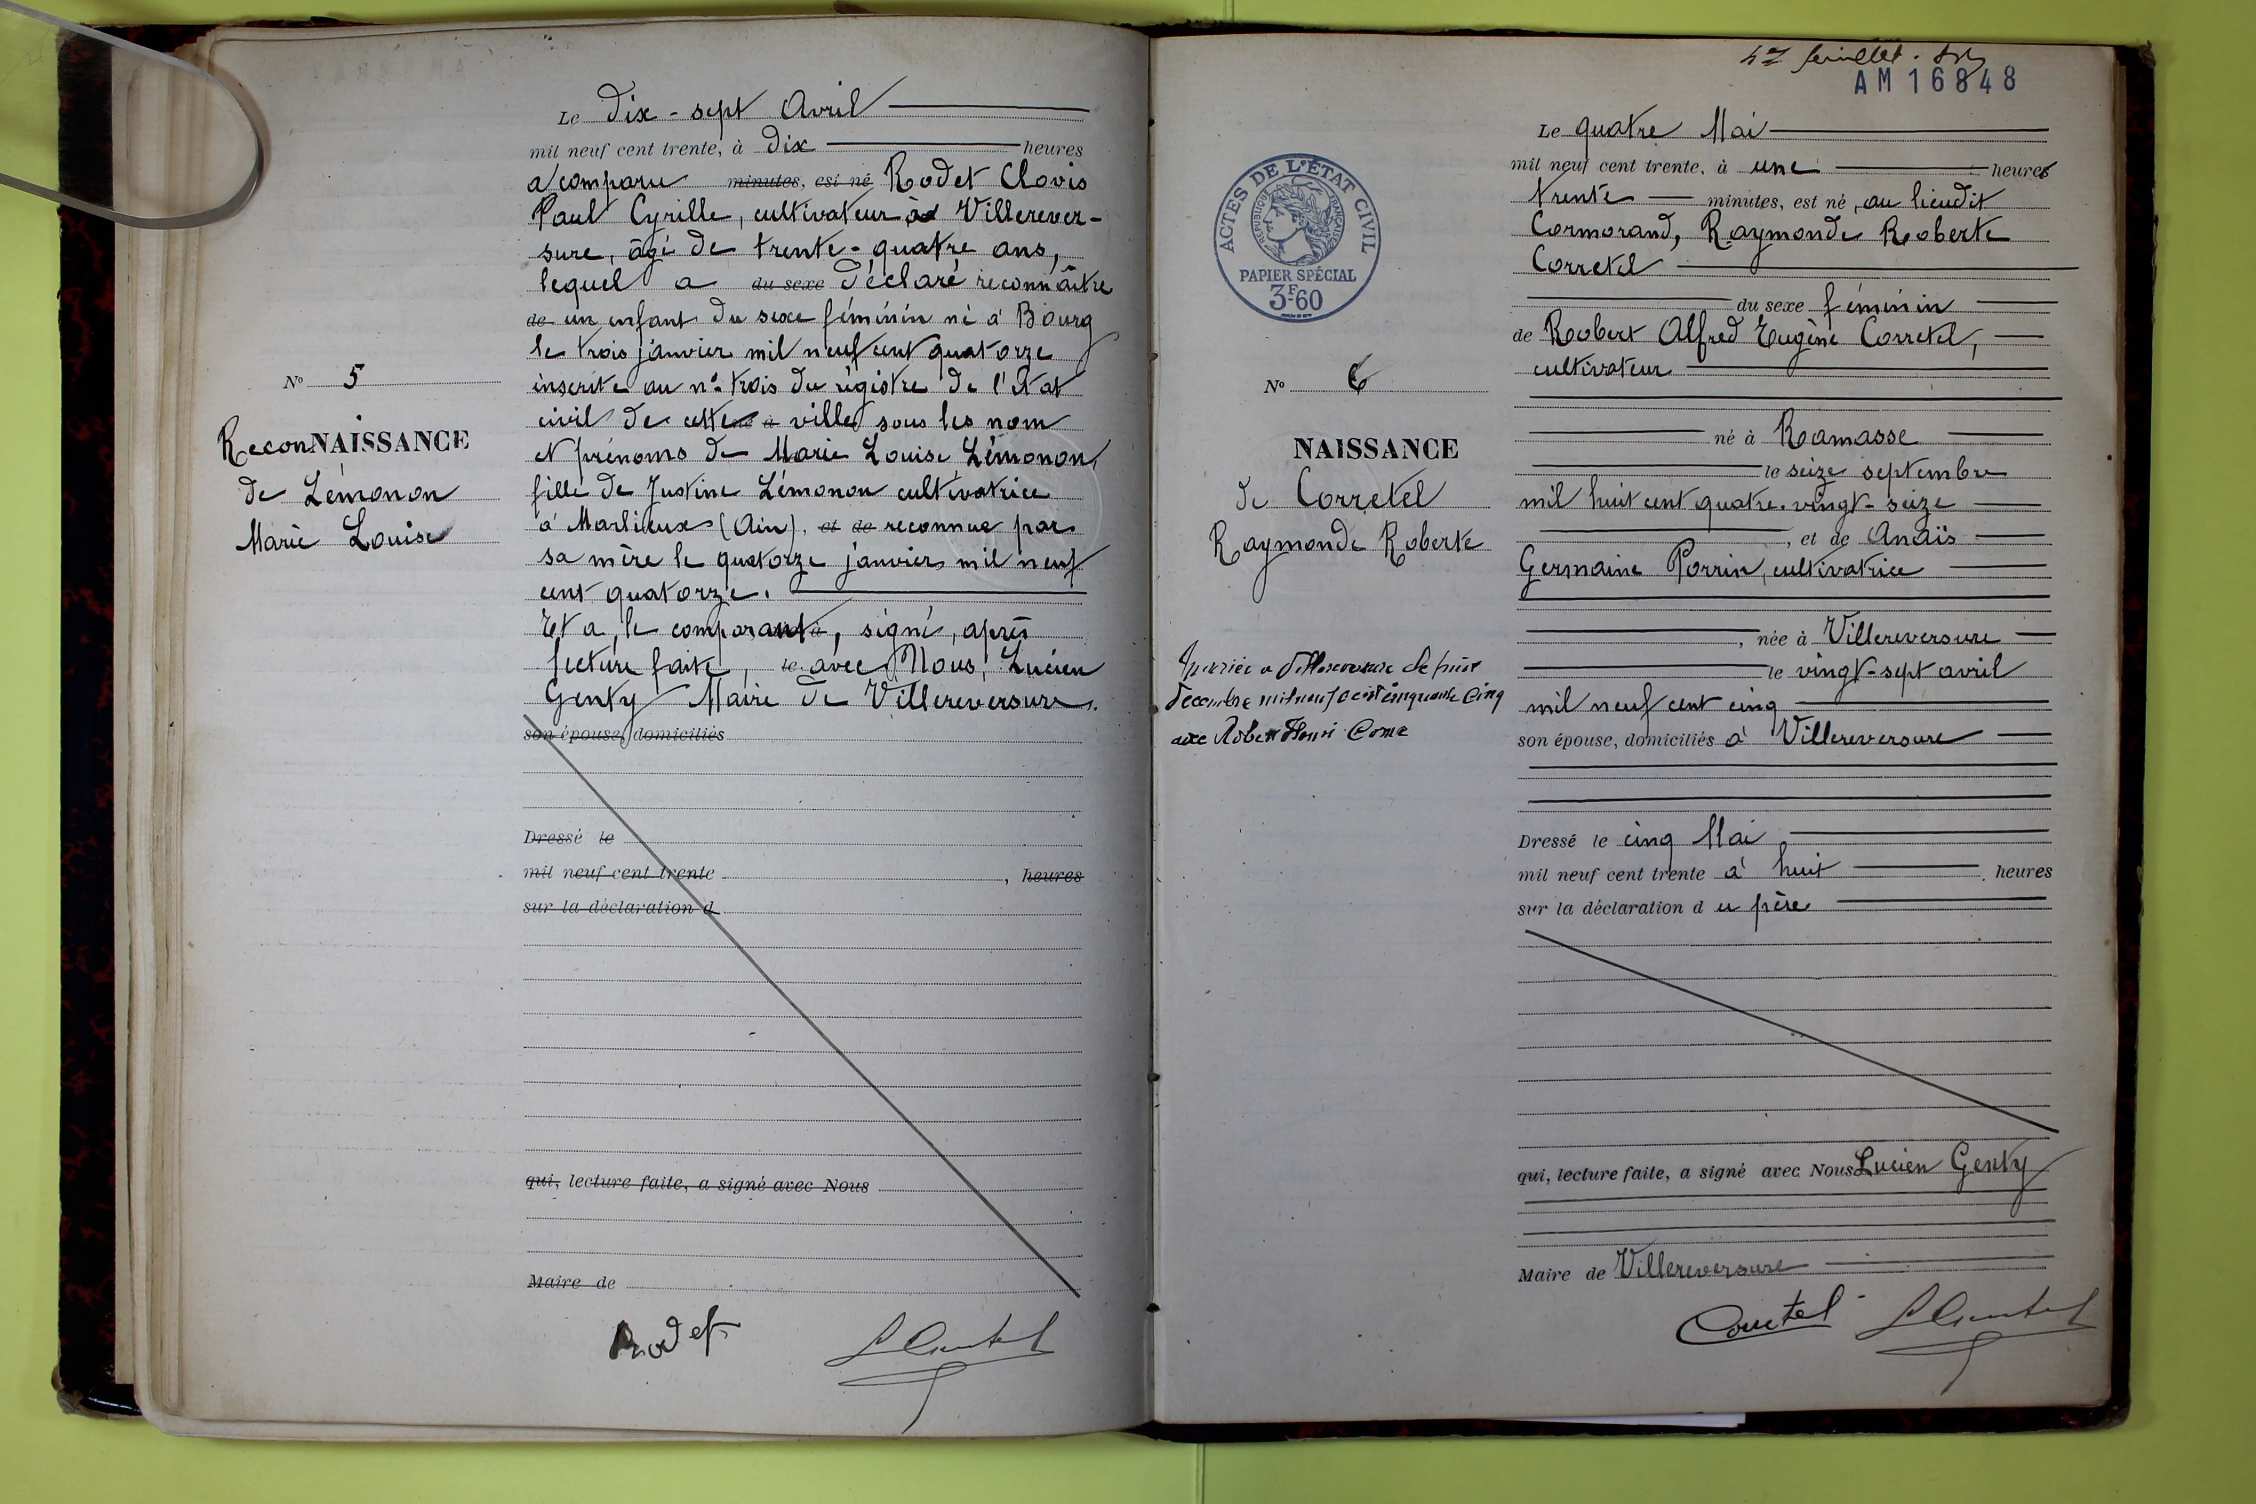 Le dix-sept Avril
mil neuf cent trente, à dix heures
a comparu minutes, est né Rodet Clovis
Paul Cyrille, cultivateur à Villerever-
sure, âgé de trente-quatre ans,
lequel a du sexe déclaré reconnaître
de un enfant du sexe féminin né à Bourg
le trois janvier mil neuf cent quatorze
inscrite au n° trois du régistre de l'Etat
civil de cette ville sous les nom
et prénoms de Marie Louise Lémonon,
fille de Justine Lémonon cultivatrice
à Marlieux (Ain), et de reconnue par
sa mère le quatorze janvier mil neuf
cent quatorze.
Et a, le comparant, signé, après
lecture faite, le avec Nous, Lucien
Genty Maire de Villereversure.
son épouse, domiciliés
Dressé le
mil neuf cent trente , heures
sur la déclaration d
qui, lecture faite, a signé avec Nous
Maire de
Rodet
N° 5
ReconNAISSANCE
de Lémonon
Marie Louise
4e feuillet.
AM 16848
ACTES DE L'ÉTAT CIVIL
RÉPUBLIQUE FRANÇAISE
PAPIER SPÉCIAL
3F60
N° 6
NAISSANCE
de Corretel
Raymonde Roberte
Mariée à Villereversure le huit
décembre mil neuf cent cinquante cinq
avec Robert Henri Come
Le quatre Mai
mil neuf cent trente, à une heures
trente minutes, est né, au lieudit
Cormorand, Raymonde Roberte
Corretel
du sexe féminin
de Robert Alfred Eugène Corretel,
cultivateur
né à Ramasse
le seize septembre
mil huit cent quatre-vingt-seize
, et de Anaïs
Germaine Porrin, cultivatrice
, née à Villereversure
le vingt-sept avril
mil neuf cent cinq
son épouse, domiciliés à Villereversure
Dressé le cinq Mai
mil neuf cent trente à huit heures
sur la déclaration du père
qui, lecture faite, a signé avec Nous Lucien Genty
Maire de Villereversure
Corretel